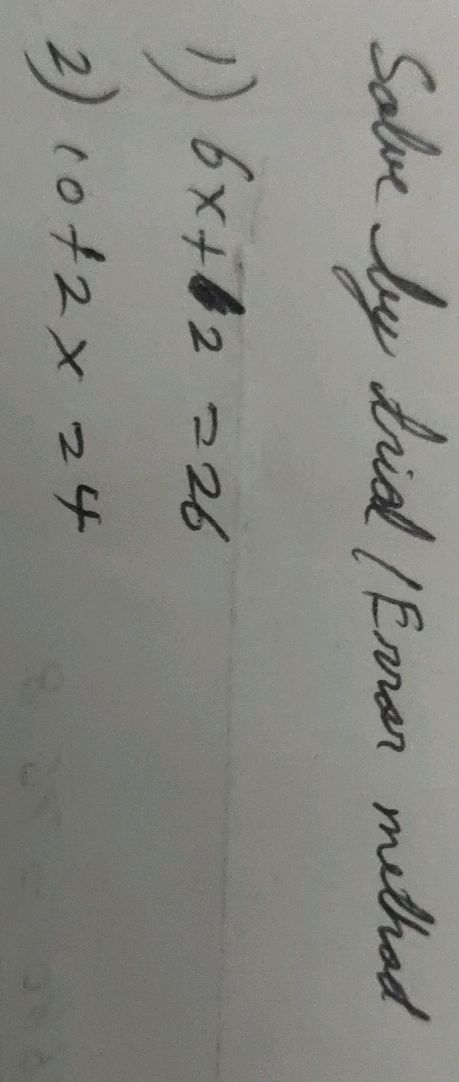 Solve by trial/Error method
1) 6x+2 = 26
2) 10+2x = 4